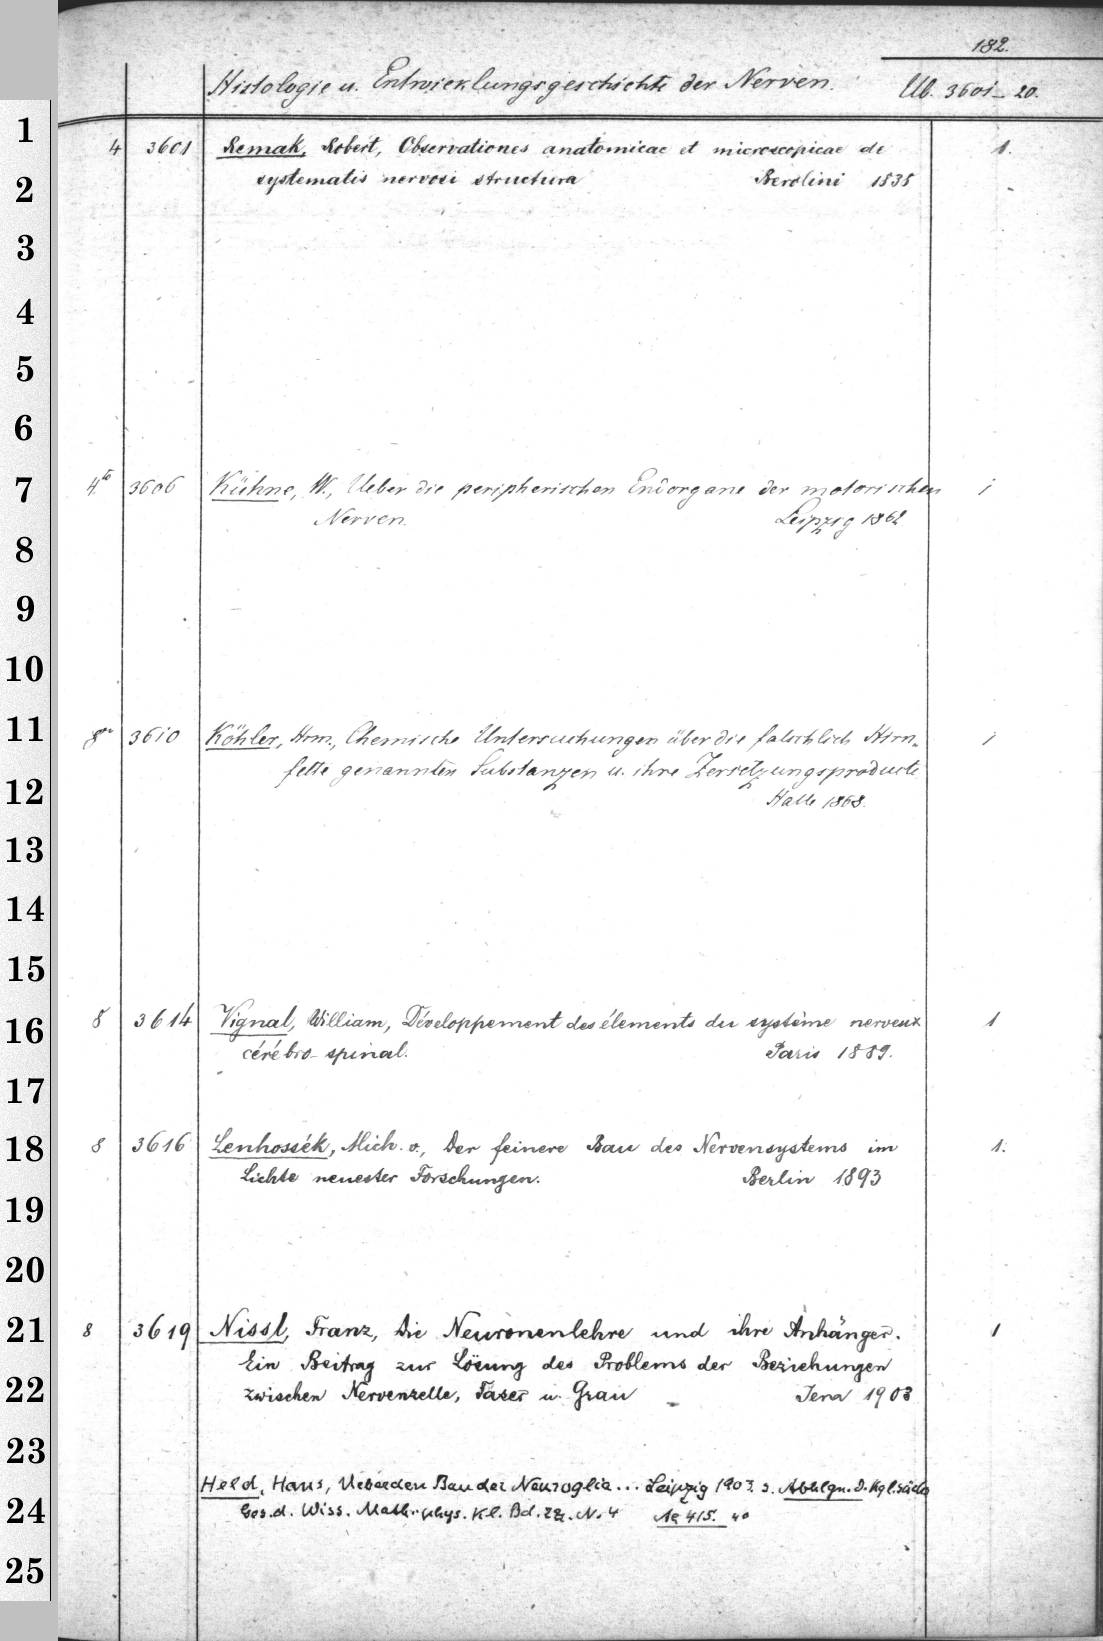 182.
Histologie u. Entwicklungsgeschichte der Nerven. Ub. 3601-20.
4 3601 Remak, Robert, Observationes anatomicae et microscopicae de 1.
systematis nervosi structura Berolini 1838
4to 3606 Kühne, W., Ueber die peripherischen Endorgane der motorischen 1
Nerven. Leipzig 1862
8vo 3610 Köhler, Hrm., Chemische Untersuchungen über die fälschlich Hirn-
fette genannten Substanzen u. ihre Zersetzungsproducte 1
Halle 1868.
8 3614 Vignal, William, Développement des élements du système nerveux 1
cérébro-spinal. Paris 1889.
8 3616 Lenhossék, Mich. v., Der feinere Bau des Nervensystems im 1.
Lichte neuester Forschungen. Berlin 1893
8 3619 Nissl, Franz, Die Neuronenlehre und ihre Anhänger. 1
Ein Beitrag zur Lösung des Problems der Beziehungen
zwischen Nervenzelle, Faser u. Grau Jena 1903
Held, Hans, Ueber den Bau der Neuroglia... Leipzig 1903. s. Abhlgn. d. Kgl. sächs
Ges. d. Wiss. Math.-phys. Kl. Bd. 28. N. 4 415. 4o
1
2
3
4
5
6
7
8
9
10
11
12
13
14
15
16
17
18
19
20
21
22
23
24
25